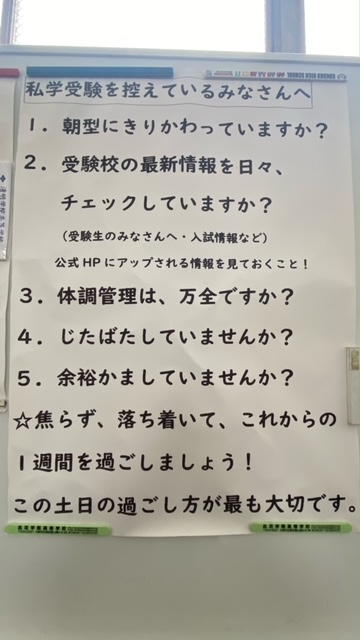 私学受験を控えているみなさんへ
１．朝型にきりかわっていますか？
２．受験校の最新情報を日々、
チェックしていますか？
（受験生のみなさんへ・入試情報など）
公式HPにアップされる情報を見ておくこと！
３．体調管理は、万全ですか？
４．じたばたしていませんか？
５．余裕かましていませんか？
☆焦らず、落ち着いて、これからの
１週間を過ごしましょう！
この土日の過ごし方が最も大切です。